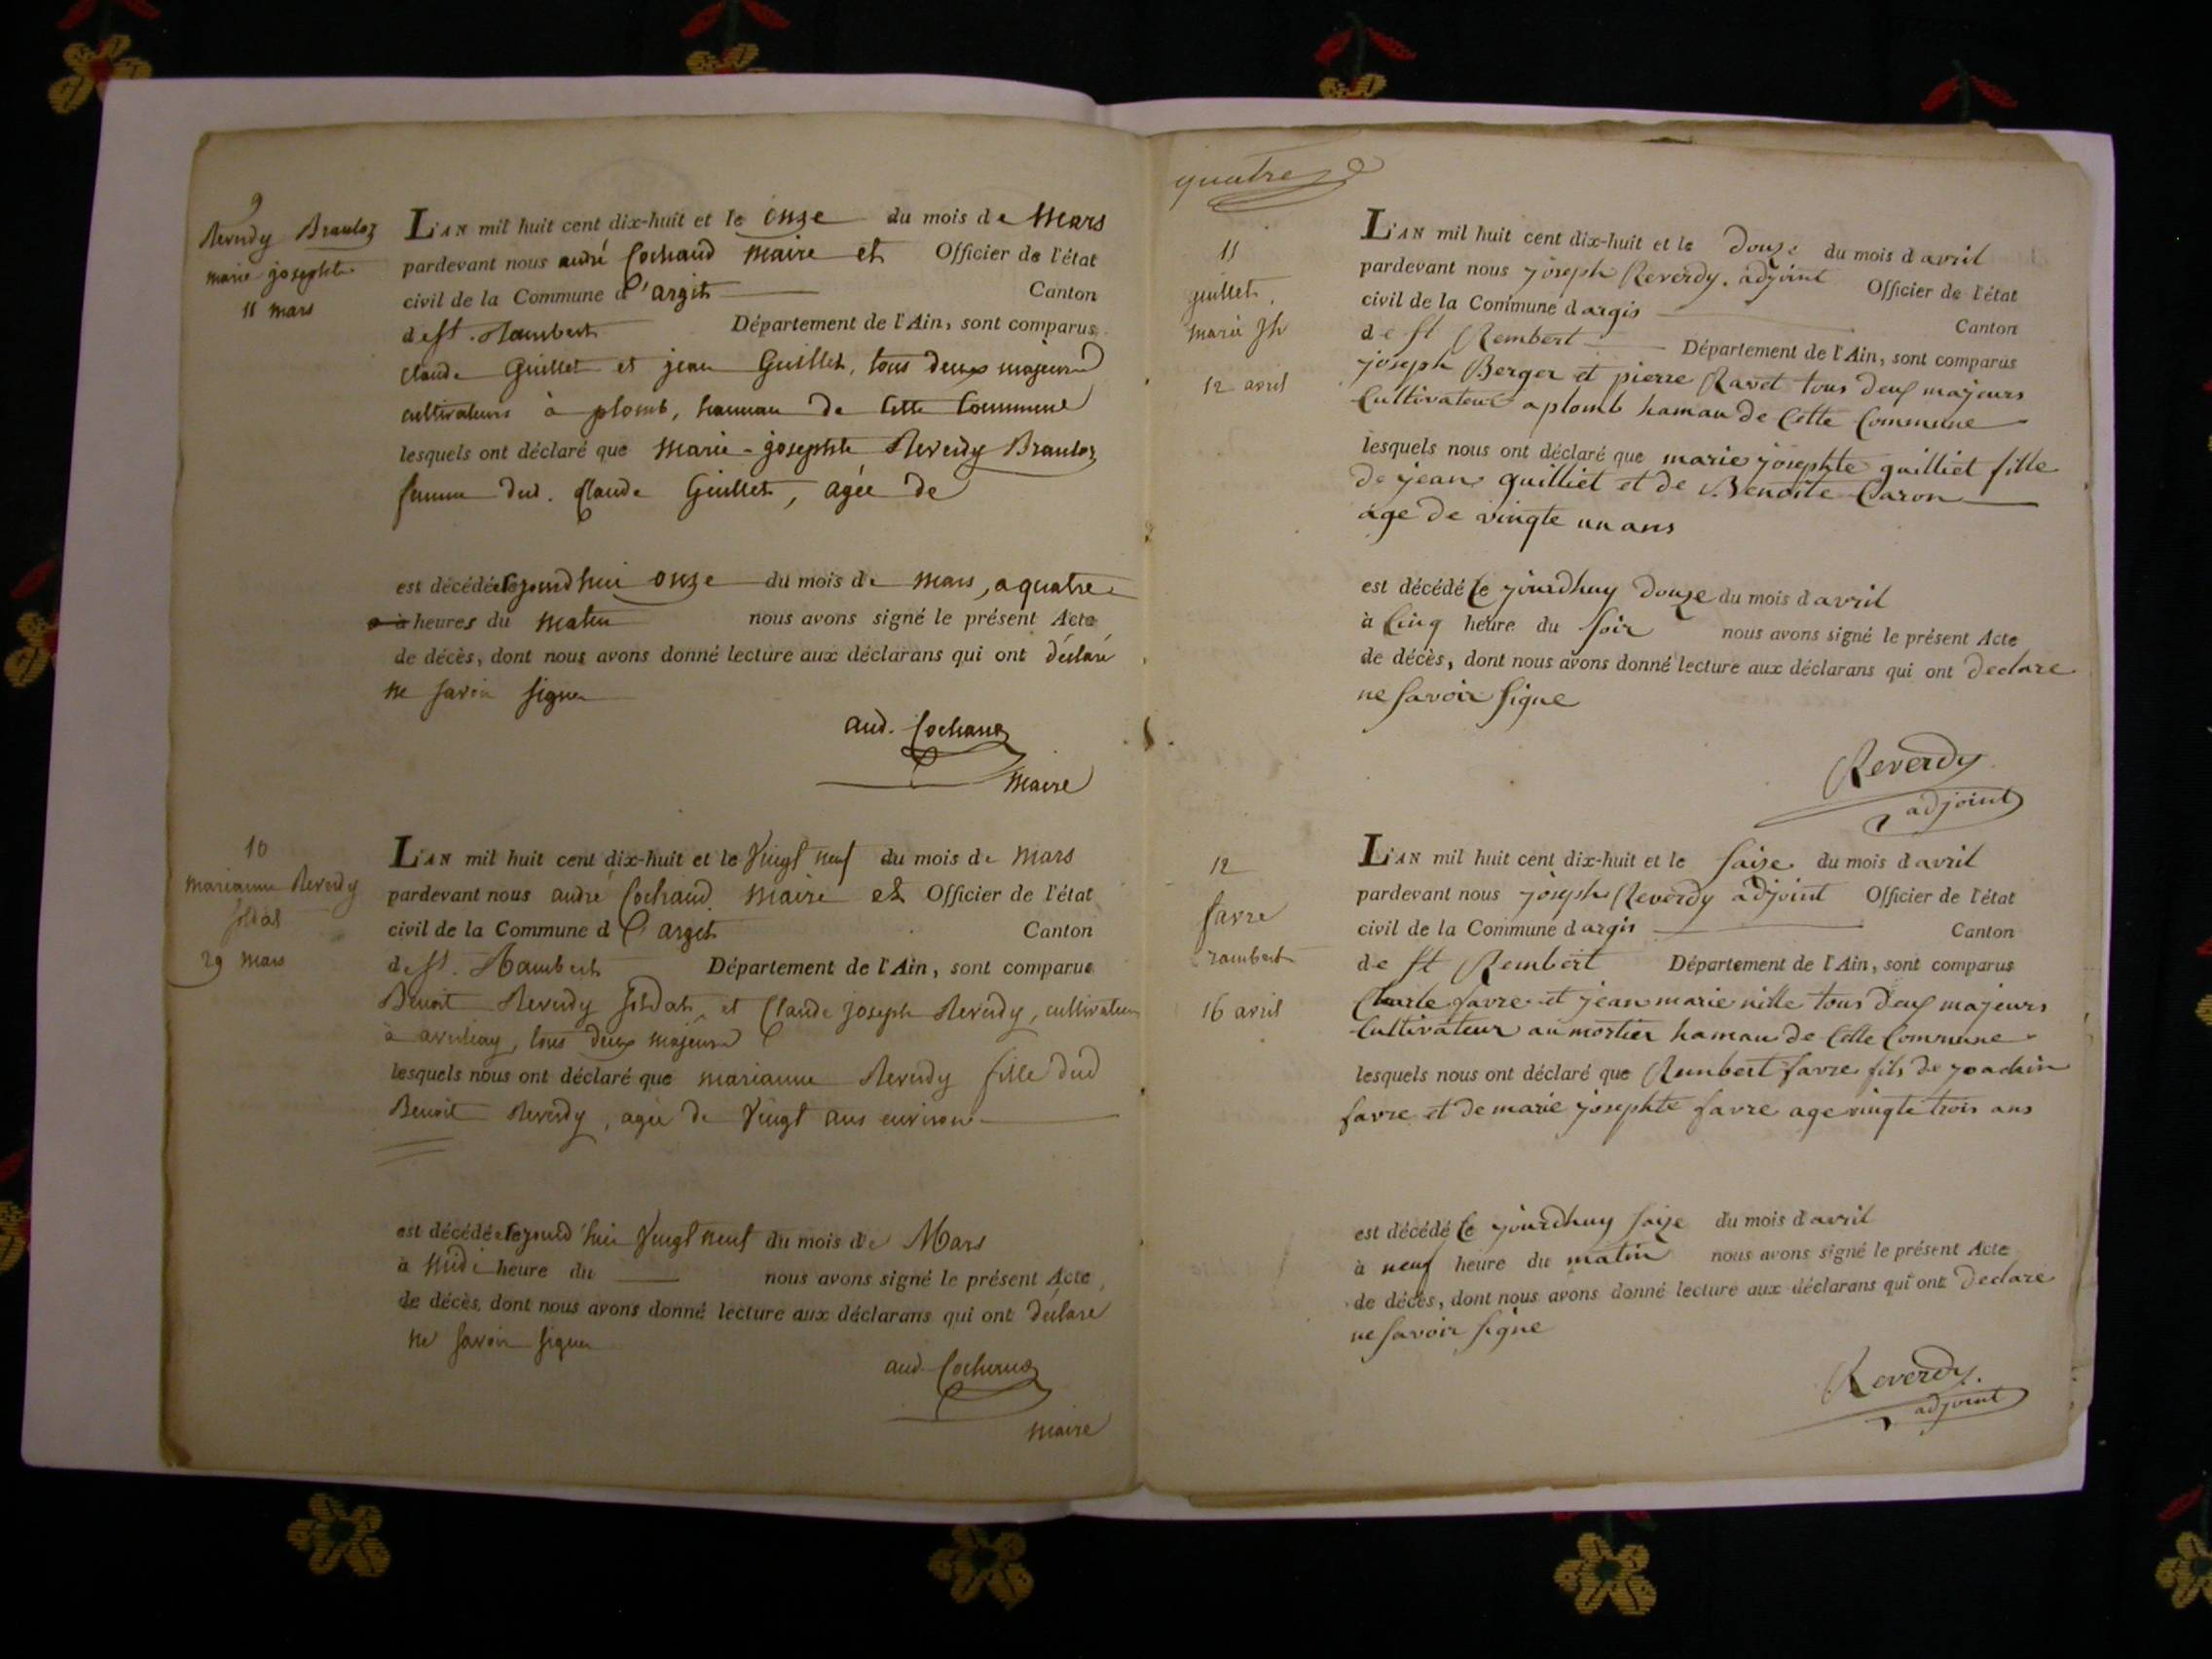 9
Reverdy Brauloz
marie josephte
11 mars
L'AN mil huit cent dix-huit et le onze du mois de Mars
pardevant nous andré Cochaud maire et Officier de l'état
civil de la Commune d'argit Canton
de st. Rambert Département de l'Ain, sont comparus
claude Guillet et jean Guillet, tous deux majeurs
cultivateurs à plomb, hameau de Cette Commune
lesquels ont déclaré que Marie-josephte Reverdy Brauloz
femme dud. Claude Guillet, agée de
est décédée cejourd'hui onze du mois de mars, a quatre
à heures du matin nous avons signé le présent Acte
de décès, dont nous avons donné lecture aux déclarans qui ont déclaré
ne savoir signer
and. Cochaud
Maire
10
marianne Reverdy
soldat
29 mars
L'AN mil huit cent dix-huit et le Vingt neuf du mois de mars
pardevant nous andré Cochaud maire et Officier de l'état
civil de la Commune d'argit Canton
de st. Rambert Département de l'Ain, sont comparus
Benoit Reverdy soldat, et Claude joseph Reverdy, cultivateurs
à, tous deux majeurs
lesquels nous ont déclaré que marianne Reverdy fille dud
Benoit Reverdy, agée de Vingt ans environ
est décédée cejourd'hui Vingt neuf du mois de Mars
à midi heure du nous avons signé le présent Acte
de décès, dont nous avons donné lecture aux déclarans qui ont déclaré
ne savoir signer
and. Cochaud
maire
quatre
11
guillet,
marie Jh
12 avril
L'AN mil huit cent dix-huit et le Douze du mois d avril
pardevant nous joseph Reverdy. adjoint Officier de l'état
civil de la Commune d argis Canton
de st Rembert Département de l'Ain, sont comparus
joseph Berger et pierre Ravet tous deux majeurs
Cultivateur a plomb hamau de Cette Commune
lesquels nous ont déclaré que marie josephte guilliet fille
de jean guilliet et de Benoite Caron
age de vingte un ans
est décédé Ce jourdhuy Douze du mois d avril
à Cinq heure du soir nous avons signé le présent Acte
de décès, dont nous avons donné lecture aux déclarans qui ont Declare
ne savoir signe
Reverdy
adjoint
12
favre
rambert
16 avril
L'AN mil huit cent dix-huit et le saize du mois d avril
pardevant nous joseph Reverdy adjoint Officier de l'état
civil de la Commune d argis Canton
de st Rembert Département de l'Ain, sont comparus
Charle favre et jean marie nille tous deux majeurs
Cultivateur au mortier hamau de Cette Commune
lesquels nous ont déclaré que Rembert favre fils de joachin
favre et de marie josephte favre age vingte trois ans
est décédé Ce jourdhuy saize du mois d avril
à neuf heure du matin nous avons signé le présent Acte
de décès, dont nous avons donné lecture aux déclarans qui ont Declare
ne savoir signe
Reverdy.
adjoint